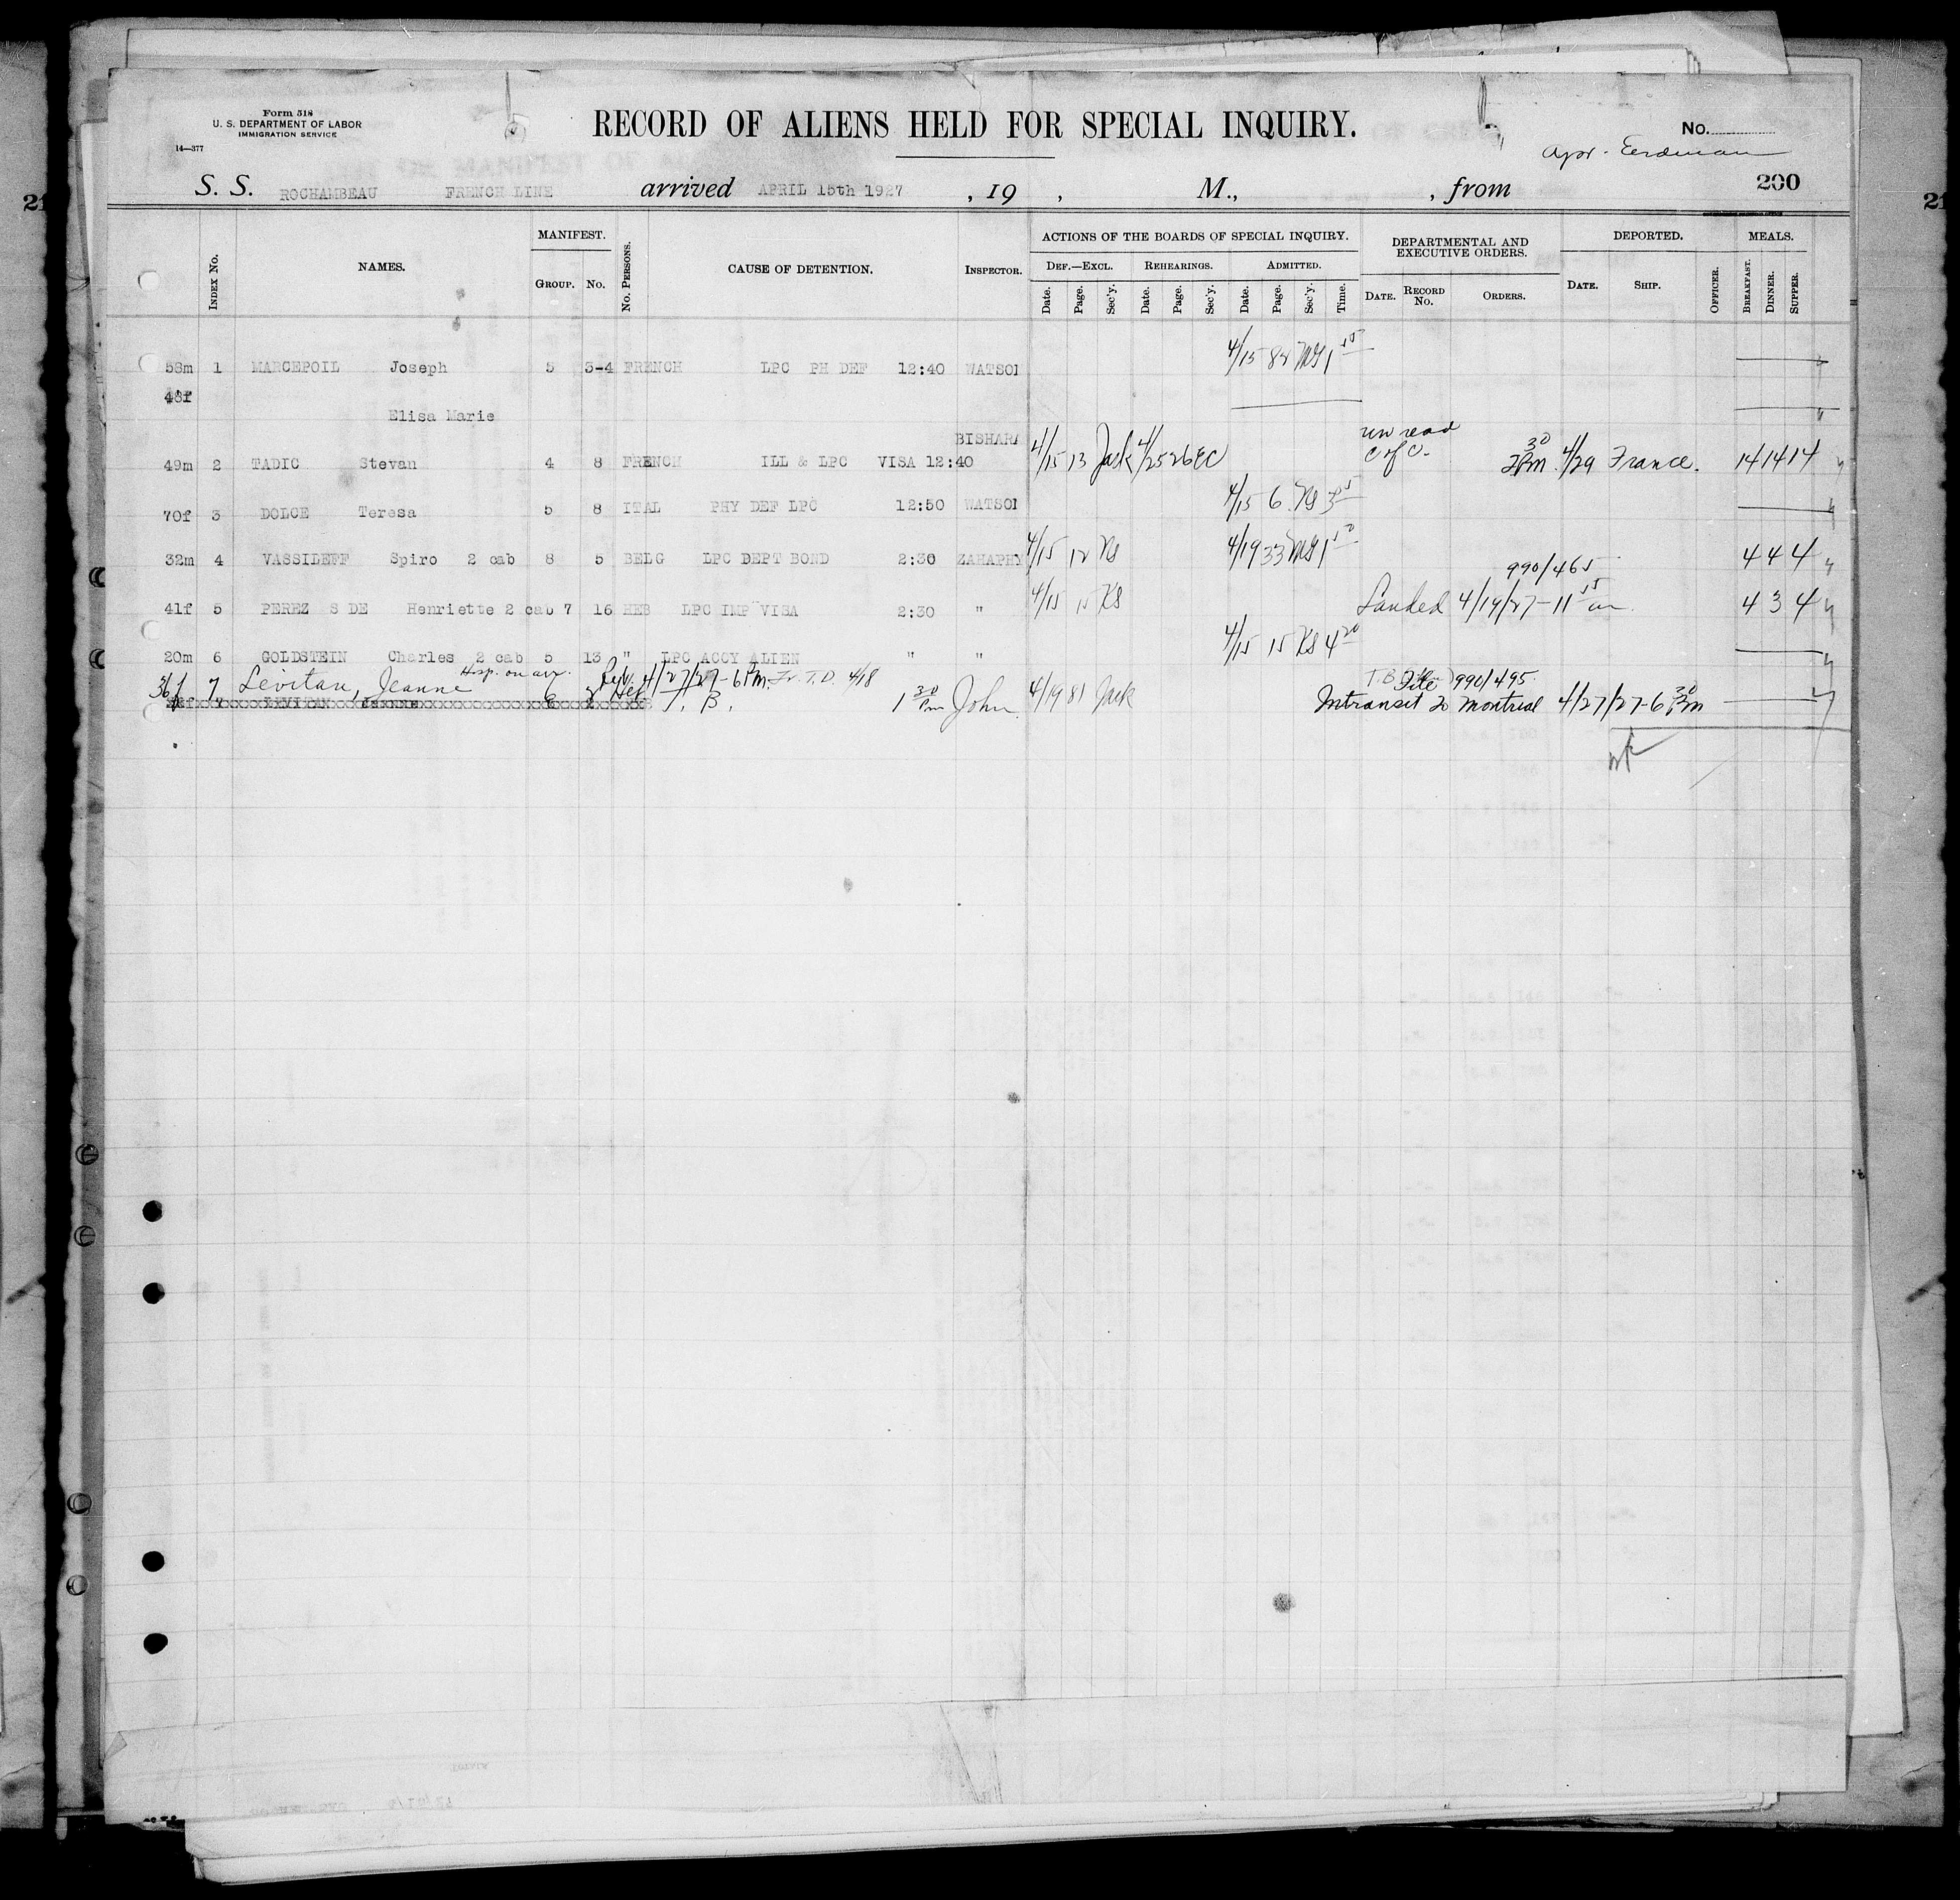 Form 518
U. S. DEPARTMENT OF LABOR
IMMIGRATION SERVICE
14—377
RECORD OF ALIENS HELD FOR SPECIAL INQUIRY.
No.
200
S. S. ROCHAMBEAU FRENCH LINE arrived APRIL 15th 1927 , 19 , M., , from
INDEX No. NAMES. MANIFEST. GROUP. No. No. PERSONS. CAUSE OF DETENTION. INSPECTOR. ACTIONS OF THE BOARDS OF SPECIAL INQUIRY. DEPARTMENTAL AND EXECUTIVE ORDERS. DEPORTED. MEALS.
DEF.—EXCL. REHEARINGS. ADMITTED.
Date. Page. Sec'y. Date. Page. Sec'y. Date. Page. Sec'y. Time. DATE. RECORD No. ORDERS. DATE. SHIP. OFFICER. BREAKFAST. DINNER. SUPPER.
58m 1 MARCEPOIL Joseph 5 3-4 FRENCH LPC PH DEF 12:40 WATSON 4/15
48f
Elisa Marie
BISHARA
49m 2 TADIC Stevan 4 8 FRENCH ILL & LPC VISA 12:40 4/15 13 Jack 4/25 26 EC C of C. 2 30 Pm 4/29 France. 14 14 14
70f 3 DOLCE Teresa 5 8 ITAL PHY DEF LPC 12:50 WATSON 4/15 6
32m 4 VASSILEFF Spiro 2 cab 8 5 BELG LPC DEPT BOND 2:30 ZAHAPHY 4/15 12 4/19 33 4 4 4
990/465
41f 5 PEREZ S DE Henriette 2 cab 7 16 HEB LPC IMP VISA 2:30 " 4/15 15 KS Landed 4/19/27-11 15 am 4 3 4
20m 6 GOLDSTEIN Charles 2 cab 5 13 " LPC ACCY ALIEN " " 4/15 15 KS 4 20
Hosp. on arr. 4/27/27-6 Pm. T.D. 4/18 990/495
36f 7 Levitan, Jeanne 6 2 Heb T. B. 1 30 Pm John 4/19 81 Jack Intransit to Montreal 4/27/27-6 30 Pm
7 LEVITAN Jeanne 6 2 HEB